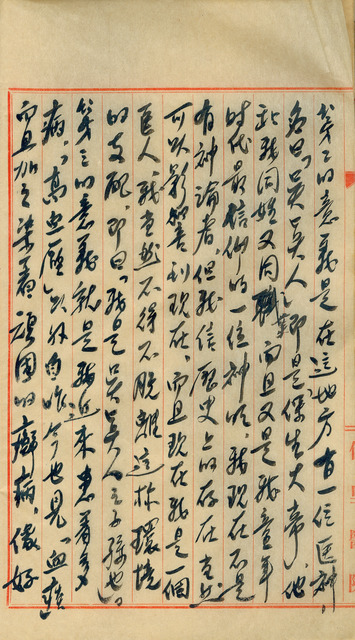 第二的意義是在這地方有一位医神,
名曰「吳真人」即是保生大帝,他
和我同姓又同職業而且又是我童年
時代最信仰的一位神明,我現在不是
有神論者但我信歷史上的存在当然
可以影響到現在,而且現在我是一個
医人,我当然不得不脫離這种環境
的支配,即曰「我是吳真人之子孫也。」
第三的意義就是我近來患著多
病,「高血壓」以外自昨今也見「血
而且加之染著頑固的癖病,做好